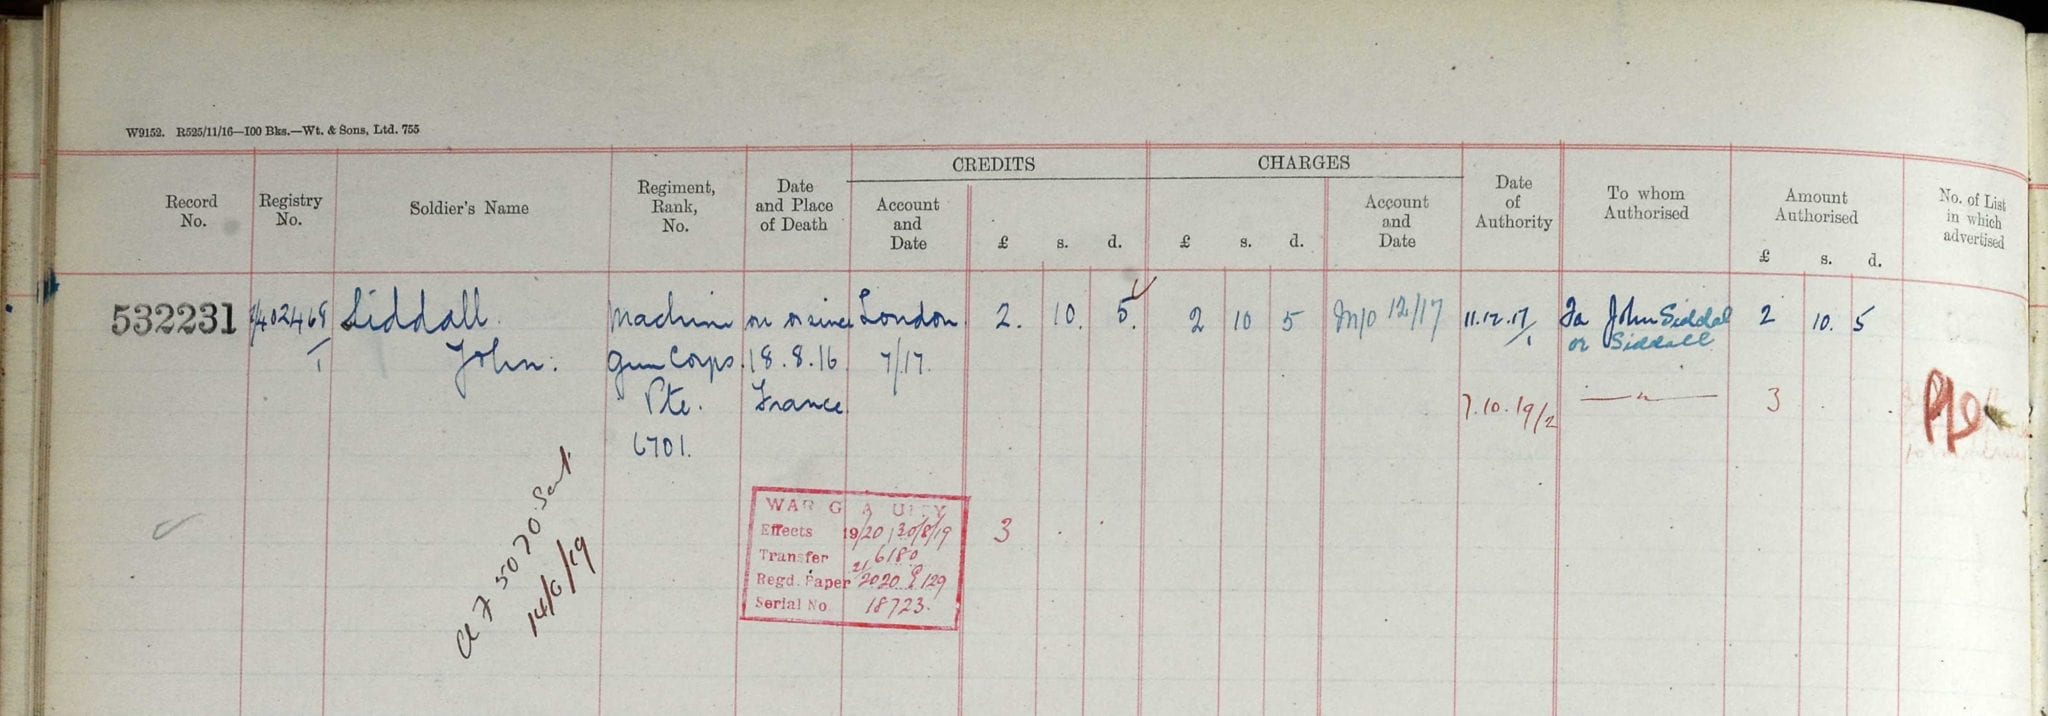 W9152. R525/11/16—100 Bks.—Wt. & Sons, Ltd. 755
CREDITS CHARGES
Record No. Registry No. Soldier's Name Regiment, Rank, No. Date and Place of Death Account and Date £ s. d. £ s. d. Account and Date Date of Authority To whom Authorised Amount Authorised £ s. d. No. of List in which advertised
532231 402468 Siddall. Machine on or since London 2. 10. 5. 2 10 5 M/O 12/17 11.12.17 Fa John Siddal 2 10. 5
1 John. Gun Corps. 18.8.16 7/17. 1 or Siddall
Pte. France 7.10.19/2 —„— 3
6701.
WAR GRATUITY
Effects 19/20 30/8/19 3
Transfer 6180
Regd. Paper 21/2020 129
Serial No. 18723.
5070 Sent
14/6/19